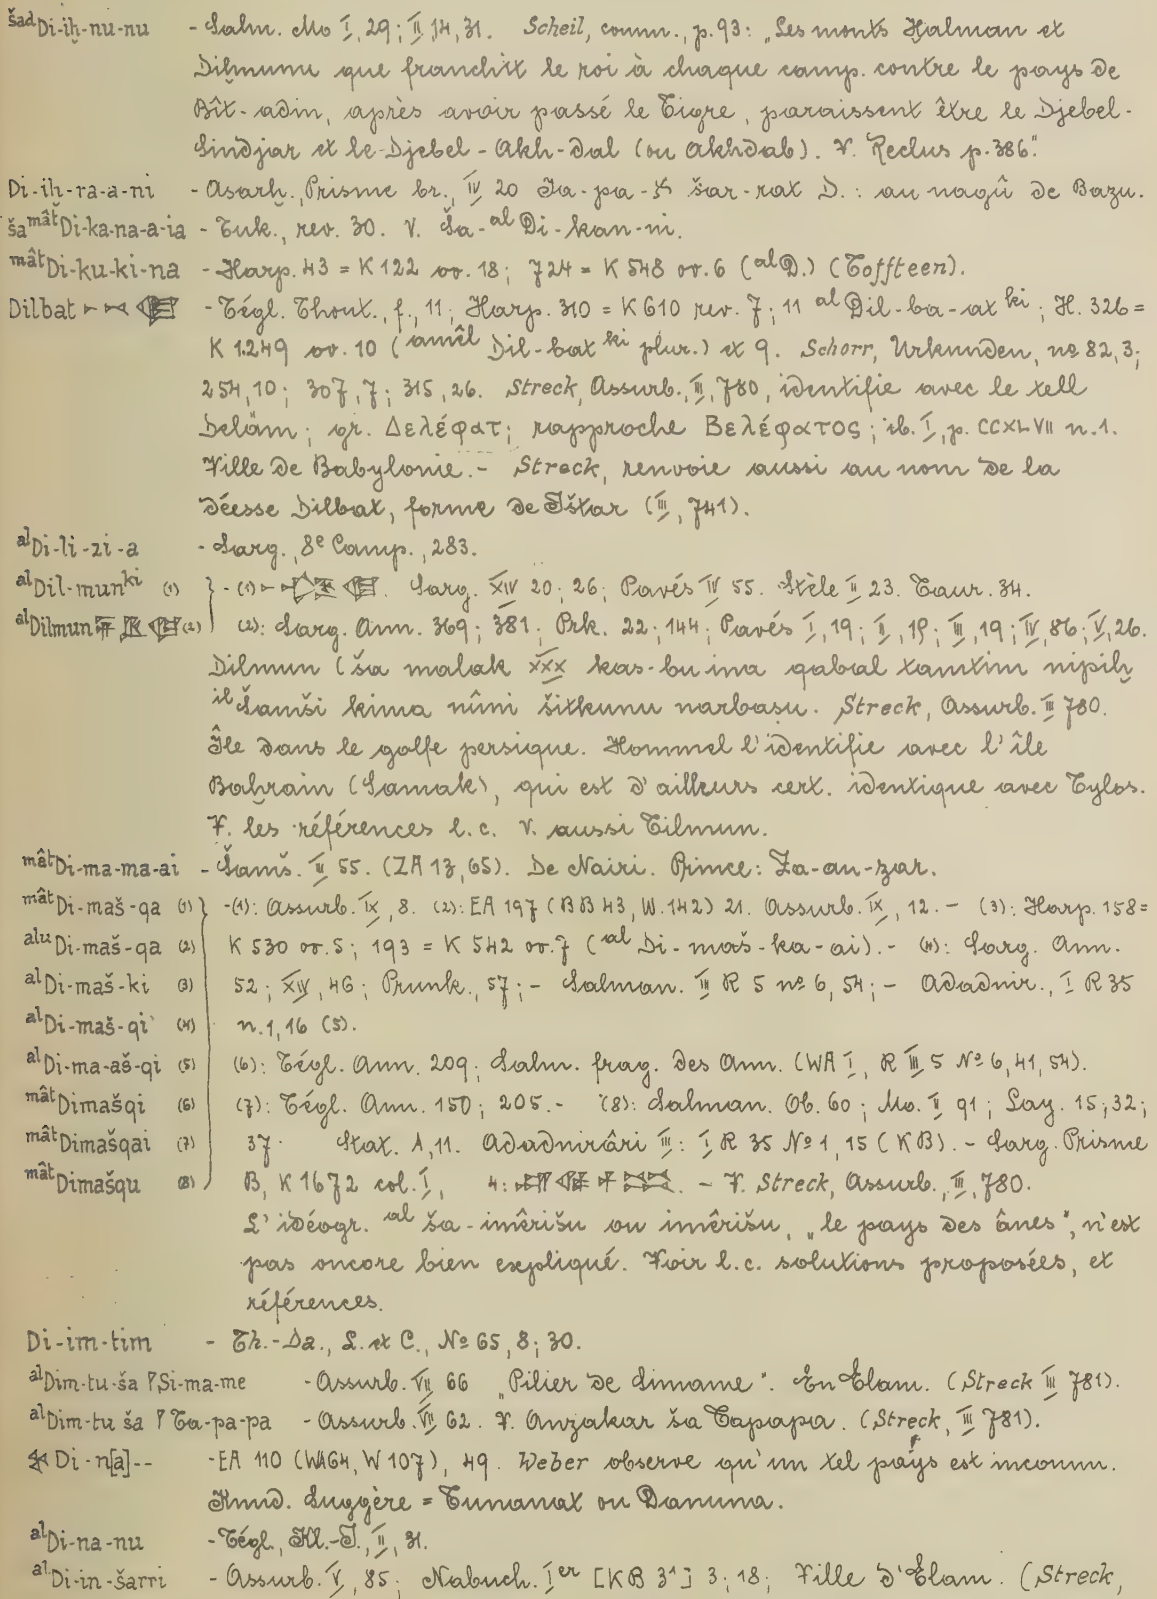 šad Di-iḫ-nu-nu - Salm. Mo I, 29; II, 14, 31. Scheil, comm., p. 93: „Les monts Ḫalman et
Diḫnunu que franchit le roi à chaque camp. contre le pays de
Bît-adin, après avoir passé le Tigre, paraissent être le Djebel-
Sindjar et le Djebel-Akh-dal (ou Akhdab). V. Reclus p. 386."
Di-iḫ-ra-a-ni - Asarh., Prisme br., IV 20 Ia-pa- šar-rat D. : au nagû de Bazu.
ša mât Di-ka-na-a-ia - Tuk., rev. 30. V. Ša-al Di-kan-ni.
mât Di-ku-ki-na - Harp. 43 = K 122 vo. 18; 724 = K 548 vo. 6 (al D.) (Toffteen).
Dilbat - Tégl. Thout., f., 11; Harp. 310 = K 610 rev. 7; 11 al Dil-ba-at ki; H. 326 =
K 1249 vo. 10 (amêl Dil-bat ki plur.) et 9. Schorr, Urkunden, no 82, 3;
254, 10; 307, 7; 315, 26. Streck, Assurb., III, 780, identifie avec le tell
Delām; gr. Δελέφατ; rapproche Βελέφατος; ib. I, p. CCXLVII n. 1.
Ville de Babylonie. - Streck, renvoie aussi au nom de la
déesse Dilbat, forme de Ištar (III, 741).
al Di-li-zi-a - Sarg., 8e Camp., 283.
al Dil-mun ki (1) - (1) Sarg. XIV 20; 26; Pavés IV 55. Stèle II 23. Taur. 34.
al Dilmun (2) (2): Sarg. Ann. 369; 381; Prk. 22; 144; Pavés I, 19; II, 19; III, 19; IV, 86; V, 26.
Dilmun (ša malak XXX kas-bu ina qabal tamtim nipiḫ
il Šamši kima nûni šitkunu narbaṣu. Streck, Assurb. III 780.
Île dans le golfe persique. Hommel l'identifie avec l'île
Baḥrain (Samak), qui est d'ailleurs cert. identique avec Tylos.
V. les références l. c. V. aussi Tilmun.
mât Di-ma-ma-ai - Šamš. II 55. (ZA 13, 65). De Nairi. Prince: Za-an-zar.
mât Di-maš-qa (1) - (1): Assurb. IX, 8. (2): EA 197 (BB 43, W. 142) 21. Assurb. IX, 12. - (3): Harp. 158 =
alu Di-maš-qa (2) K 530 vo. 5; 193 = K 542 vo. 7 (al Di-maš-ka-ai). - (4): Sarg. Ann.
al Di-maš-ki (3) 52; XIV, 46; Prunk., 57; - Salman. III R 5 no 6, 54; - Adadnir., I R 35
al Di-maš-qi (4) n. 1, 16 (5).
al Di-ma-aš-qi (5) (6): Tégl. Ann. 209; Salm. frag. des Ann. (WA I, R III 5 No 6, 41, 54).
mât Dimašqi (6) (7): Tégl. Ann. 150; 205. - (8): Salman. Ob. 60; Mo. II 91; Lay. 15; 32;
mât Dimašqai (7) 37 Stat. A, 11. Adadnirâri III: I R 35 No 1, 15 (KB). - Sarg. Prisme
mât Dimašqu (8) B, K 1672 col. I, 4: . - V. Streck, Assurb., III, 780.
L'idéogr. al ša-imêrišu ou imêrišu, „le pays des ânes", n'est
pas encore bien expliqué. Voir l. c. solutions proposées, et
références.
Di-im-tim - Th.-Da., L. et C., No 65, 8; 30.
al Dim-tu-ša Si-ma-me - Assurb. VII 66 „Pilier de Simame". En Elam. (Streck III 781).
al Dim-tu ša Ta-pa-pa - Assurb. VII 62. V. Anzakar ša Tapapa. (Streck, III 781).
Di-n[a]-- - EA 110 (WA 64, W 107), 49. Weber observe qu'un tel pays est inconnu.
Knud. Suggère = Tunanat ou Danuna.
al Di-na-nu - Tégl., Kl.-I., II, 31.
al Di-in-šarri - Assurb. V, 85; Nabuch. Ier [KB 3¹] 3; 18; Ville d'Elam. (Streck,